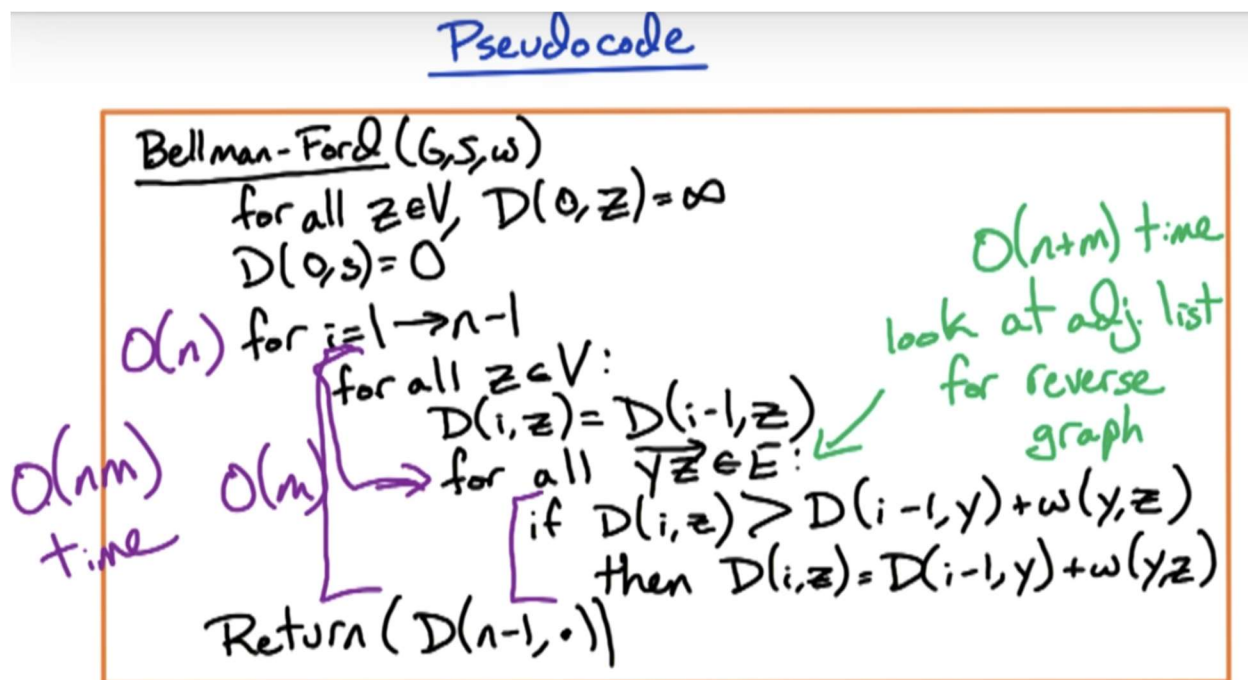 Pseudocode
Bellman-Ford (G,S,w)
for all z∈V, D(0,z)=∞
D(0,s)=0
O(n) for i=1→n-1
for all z∈V:
D(i,z)=D(i-1,z)
O(m) for all yz∈E:
if D(i,z)>D(i-1,y)+w(y,z)
then D(i,z)=D(i-1,y)+w(y,z)
Return(D(n-1,·))
O(nm)
time
O(n+m) time
look at adj. list
for reverse
graph